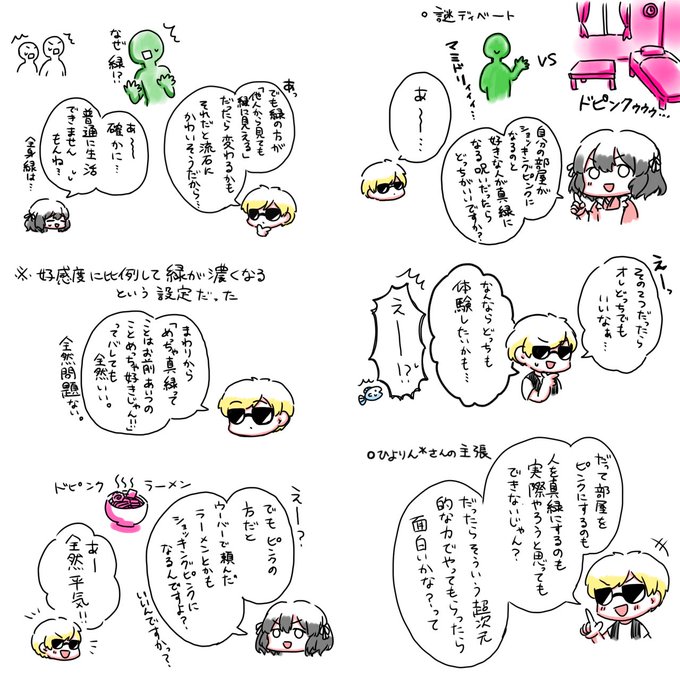 ○謎ディベート
マミドリィィィ…
VS
ドピンクゥゥゥ…
自分の部屋が
ショッキングピンクに
なるのと
好きな人が真緑に
なる呪いだったら
どっちがいいですか?
あ〜〜…
えーっ
その2つだったら
オレどっちでも
いいなぁ…
なんならどっちも
体験したいかも…
えーー!?
○ひよりん*さんの主張
だって部屋を
ピンクにするのも
人を真緑にするのも
実際やろうと思っても
できないじゃん?
だったらそういう超次元
的な力でやってもらったら
面白いかな?って
なぜ緑!?
あっ
でも緑の方が
「他人から見ても
緑に見える」
だったら変わるかも
それだと流石に
かわいそうだから…
あ〜〜
確かに…
普通に生活
できません
もんね?
全身緑は…
※好感度に比例して緑が濃くなる
という設定だった
まわりから
「めっちゃ真緑って
ことはお前あいつの
ことめっちゃ好きじゃん!!」
ってバレても
全然いい。
全然問題ない。
ドピンク ラーメン
えー?
でもピンクの
方だと
ウーバーで頼んだ
ラーメンとかも
ショッキングピンクに
なるんですよ?
いいんですかっ?
あー
全然平気!!